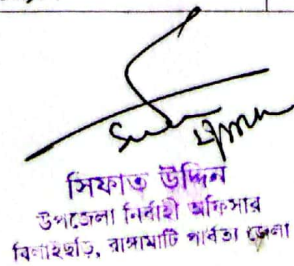 সিফাত উদ্দিন
উপজেলা নির্বাহী অফিসার
বিলাইছড়ি, রাঙ্গামাটি পার্বত্য জেলা